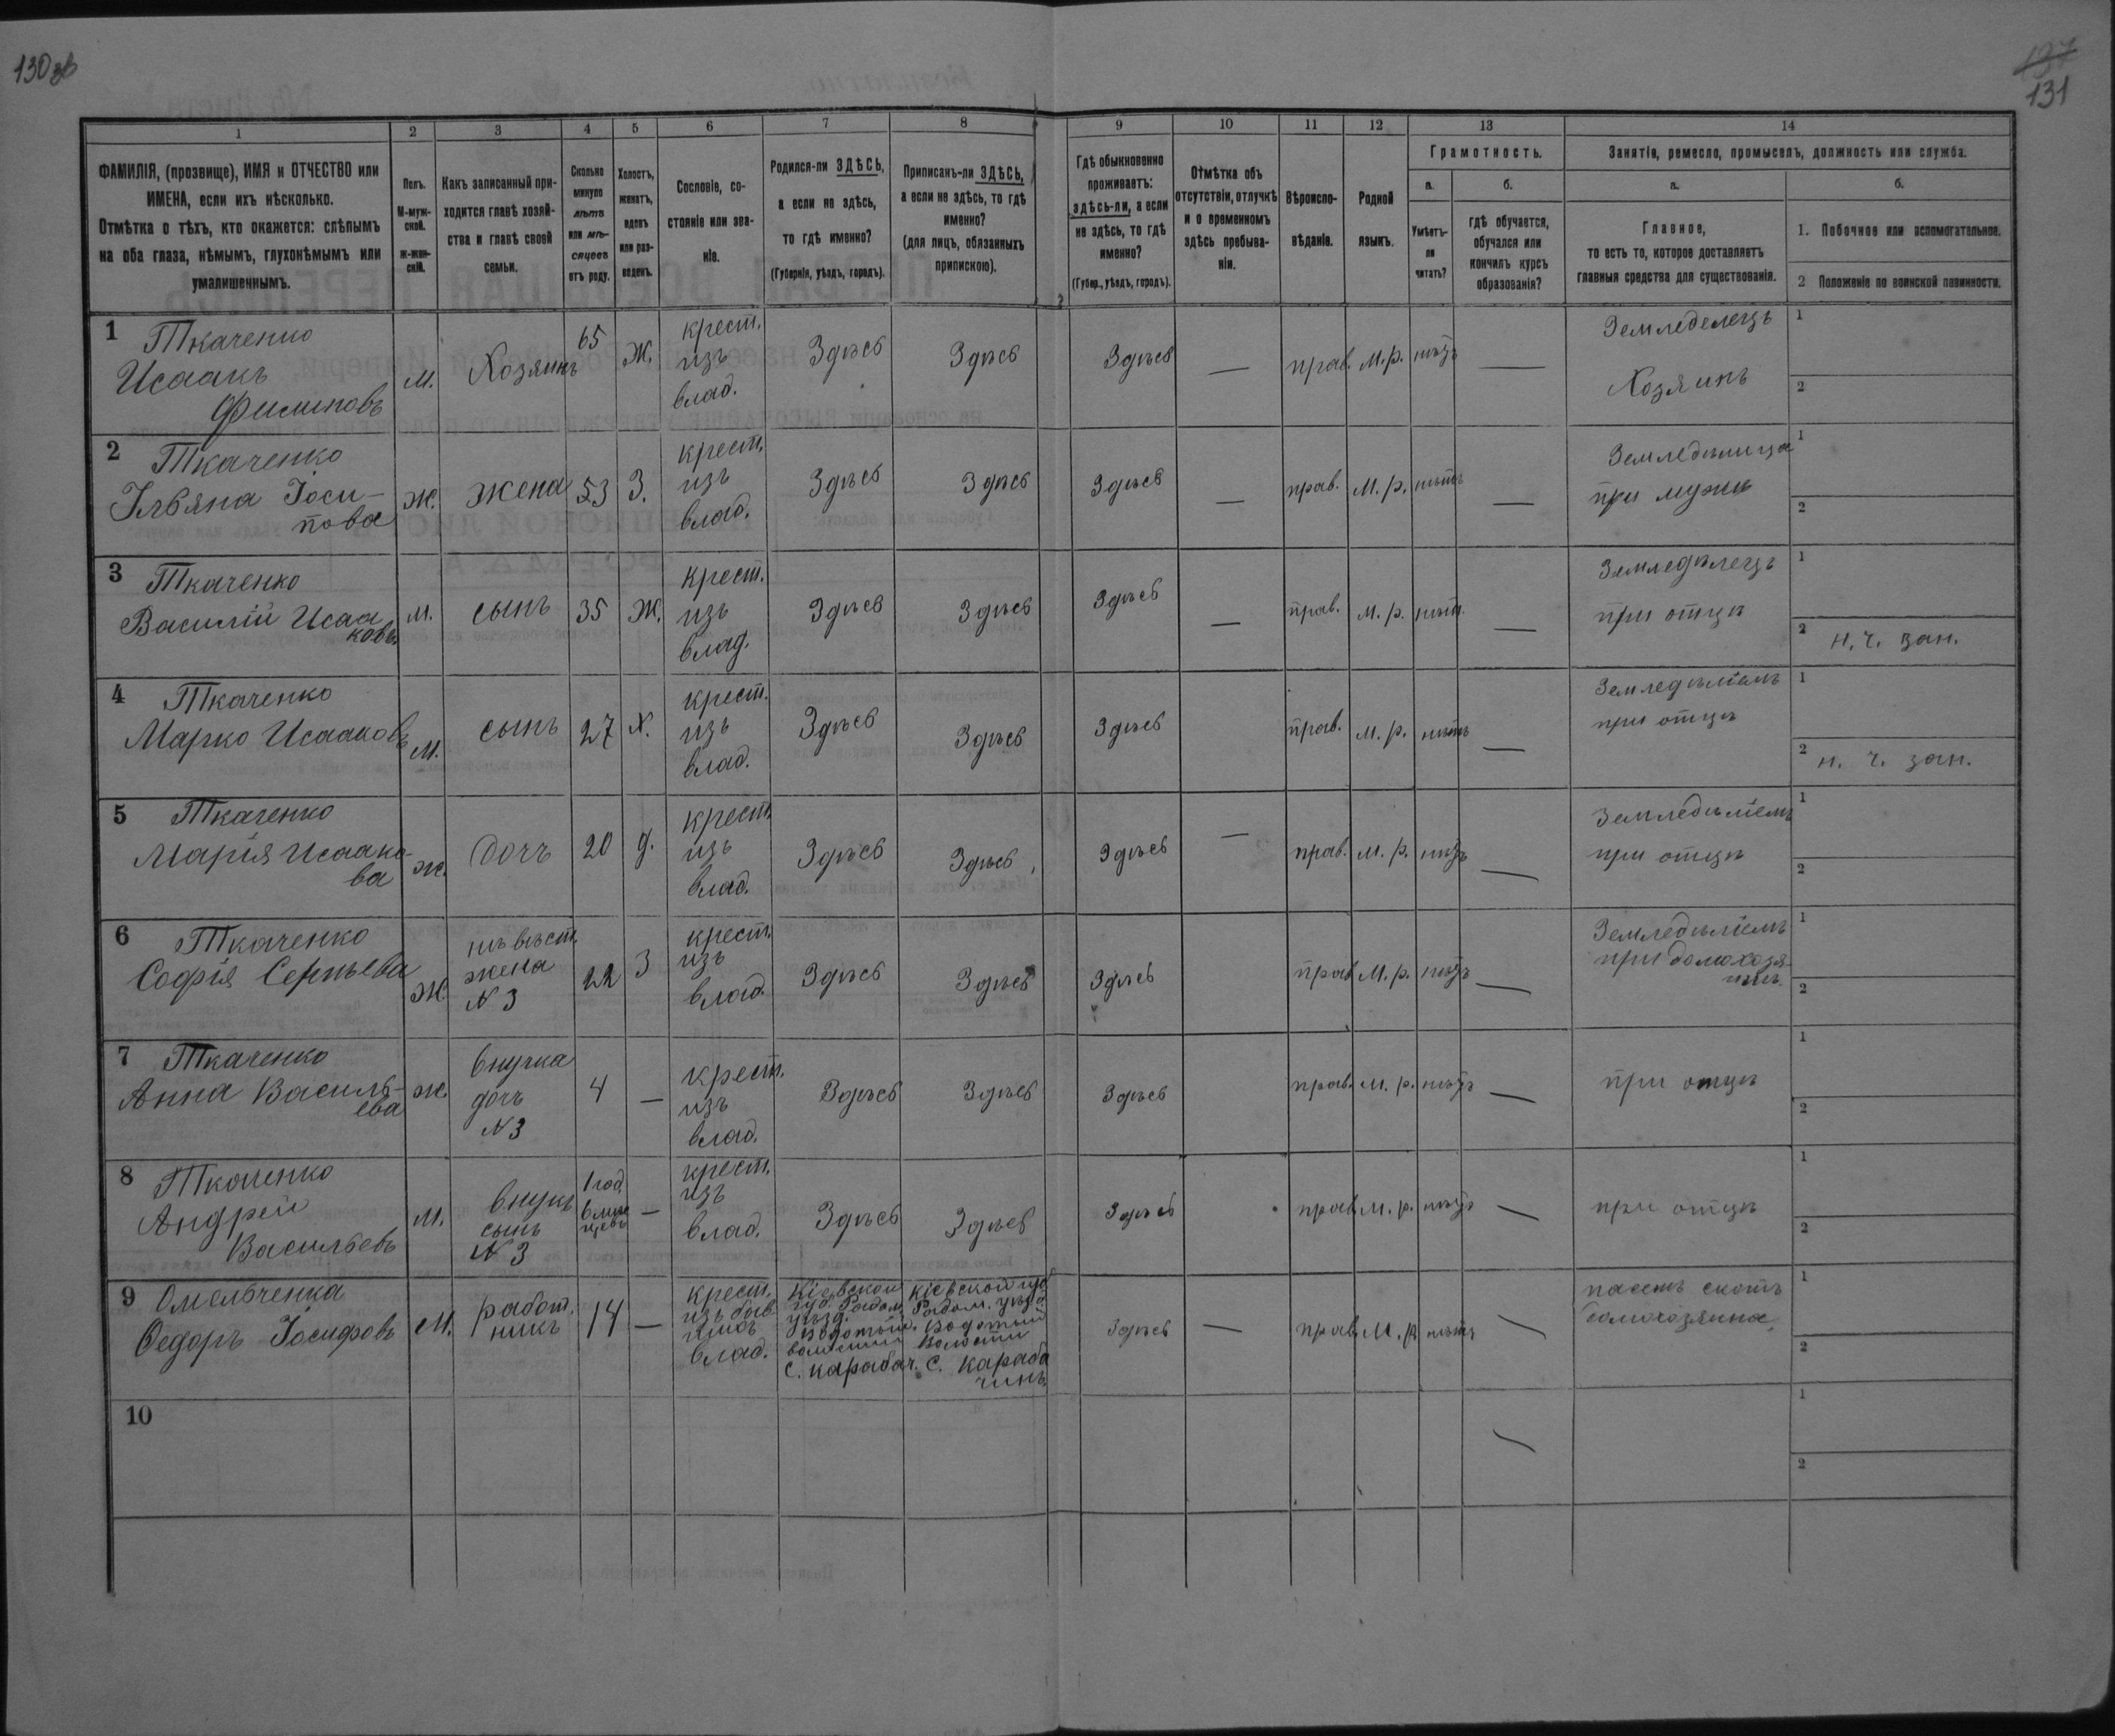 130зв
137
131
1
2
3
4
5
6
7
8
9
10
11
12
13
14
ФАМИЛІЯ, (прозвище), ИМЯ и ОТЧЕСТВО или
ИМЕНА, если ихъ нѣсколько.
Отмѣтка о тѣхъ, кто окажется: слѣпымъ
на оба глаза, нѣмымъ, глухонѣмымъ или
умалишеннымъ.
Полъ.
М-муж-
ской.
ж-жен-
скій.
Какъ записанный при-
ходится главѣ хозяй-
ства и главѣ своей
семьи.
Сколько
минуло
лѣтъ
или мѣ-
сяцевъ
отъ роду.
Холостъ,
женатъ,
вдовъ
или раз-
веденъ.
Сословіе, со-
стояніе или зва-
ніе.
Родился-ли ЗДѢСЬ,
а если не здѣсь,
то гдѣ именно?
(Губернія, уѣздъ, городъ).
Приписанъ-ли ЗДѢСЬ,
а если не здѣсь, то гдѣ
именно?
(для лицъ, обязанныхъ
припискою).
Гдѣ обыкновенно
проживаетъ:
здѣсь-ли, а если
не здѣсь, то гдѣ
именно?
(Губер., уѣздъ, городъ).
Отмѣтка объ
отсутствіи, отлучкѣ
и о временномъ
здѣсь пребыва-
ніи.
Вѣроиспо-
вѣданіе.
Родной
языкъ.
Грамотность.
а.
Умѣетъ-
ли
читать?
б.
гдѣ обучается,
обучался или
кончилъ курсъ
образованія?
Занятіе, ремесло, промыселъ, должность или служба.
а.
Главное,
то есть то, которое доставляетъ
главныя средства для существованія.
б.
1. Побочное или вспомогательное.
2 Положеніе по воинской повинности.
1 Ткаченко
Исаакъ
Филиповъ
м.
Хозяинъ
65
Ж.
крест.
изъ
влад.
Здѣсь
Здѣсь
Здѣсь
—
прав.
М.р.
нѣтъ
—
Земледелецъ
Хозяинъ
1
2
2 Ткаченко
Ульяна Іоси-
пова
Ж.
жена
53
З.
крест.
изъ
влад.
Здѣсь
Здѣсь
Здѣсь
—
прав.
М.р.
нѣтъ
—
Земледѣлица
при мужѣ
1
2
3 Ткаченко
Василій Исаа
ковъ
м.
сынъ
35
Ж.
крест.
изъ
влад.
Здѣсь
Здѣсь
Здѣсь
—
прав.
М.р.
нѣт.
—
Земледѣлецъ
при отцѣ
1
2 н. ч. зап.
4 Ткаченко
Марко Исааковъ
м.
сынъ
27
Х.
крест.
изъ
влад.
Здѣсь
Здѣсь
Здѣсь
прав.
М.р.
нѣтъ
—
Земледѣліемъ
при отцѣ
1
2 н. ч. зап.
5 Ткаченко
Марія Исаако-
ва
ж.
дочъ
20
д.
крест.
изъ
влад.
Здѣсь
Здѣсь
Здѣсь
—
прав.
М.р.
нѣтъ
—
Земледѣліемъ
при отцѣ
1
2
6 Ткаченко
Софія Сергѣева
ж
невѣст.
жена
N 3
22
З
крест.
изъ
влад.
Здѣсь
Здѣсь
Здѣсь
прав
М.р.
нѣтъ
—
Земледѣліемъ
при домохозя-
инѣ.
1
2
7 Ткаченко
Анна Василь-
ева
ж.
внучка
дочъ
N 3
4
—
крест.
изъ
влад.
Здѣсь
Здѣсь
Здѣсь
прав.
М.р.
нѣтъ
—
при отцѣ
1
2
8 Ткаченко
Андрей
Васильевъ
м.
внукъ
сынъ
N 3
1 год.
—
крест.
изъ
влад.
Здѣсь
Здѣсь
Здѣсь
прав.
М.р.
нѣтъ
—
при отцѣ
1
2
9 Омельченка
Федоръ Іосифовъ
М.
работ.
никъ
14
—
крест.
изъ быв.
влад.
Кіевской
губ. Радом.
уѣзд.
Водотый.
волости
с. карабач.
Кіевской губ.
Радом. уѣзд.
Водотый
Волости
с. Караба
чинъ.
Здѣсь
—
прав.
М.р.
нѣтъ
—
пасетъ скотъ
домохозяина.
1
2
10
—
1
2